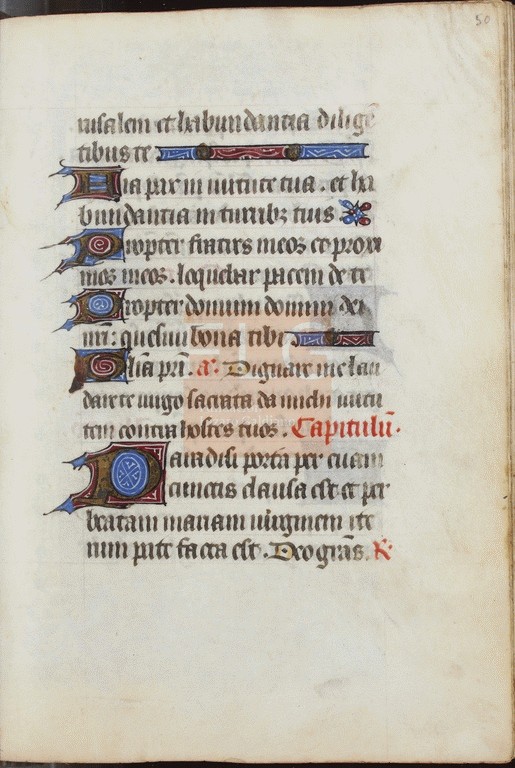 50
rusalem et habundantia diligē
tibus te
Fiat pax in uirtute tua. et ha
bundantia in turibꝫ tuis
Propter fratres meos et proxi
mos meos. loquebar pacem de te
Propter domum domini dei
nr̄i: quesiui bona tibi
Glīa pri. a. Dignare me lau
dare te uirgo sacrata da michi uirtu
tem contra hostes tuos. Capitulū.
Paradisi porta per euam
cunctis clausa est et per
beatam mariam uirginem ite
rum pate facta est. Deo gr̄as. R